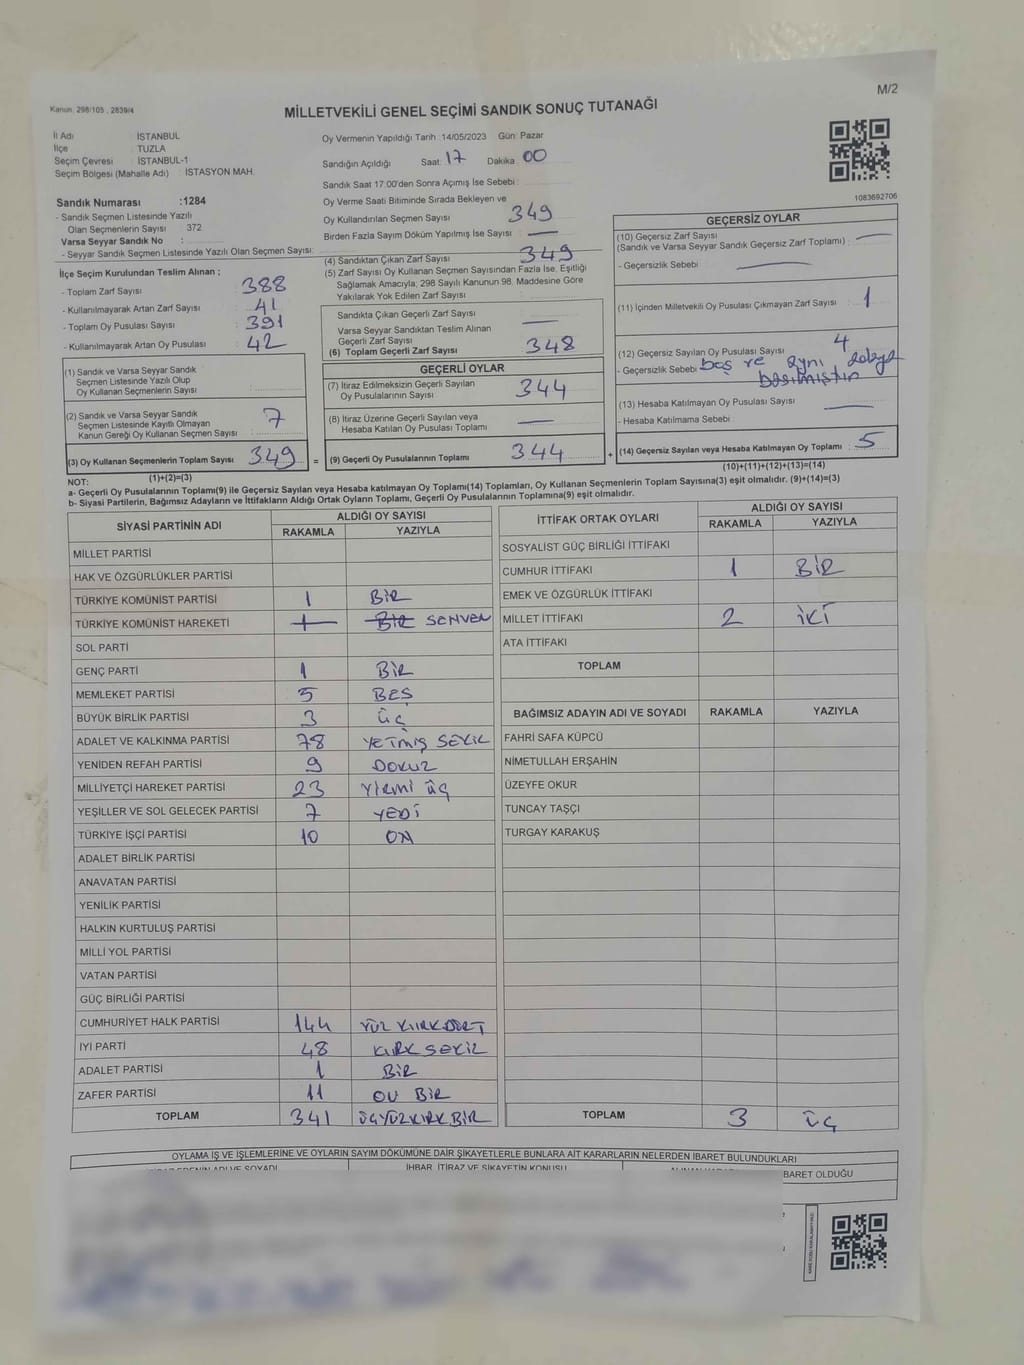 M/2
Kanun. 298/105 , 2839/4
MİLLETVEKİLİ GENEL SEÇİMİ SANDIK SONUÇ TUTANAĞI
İl Adı : İSTANBUL
İlçe : TUZLA
Seçim Çevresi : İSTANBUL-1
Seçim Bölgesi (Mahalle Adı) : İSTASYON MAH.
Sandık Numarası :1284
- Sandık Seçmen Listesinde Yazılı
Olan Seçmenlerin Sayısı : 372
Varsa Seyyar Sandık No :
- Seyyar Sandık Seçmen Listesinde Yazılı Olan Seçmen Sayısı:
İlçe Seçim Kurulundan Teslim Alınan ;
- Toplam Zarf Sayısı : 388
- Kullanılmayarak Artan Zarf Sayısı : 41
- Toplam Oy Pusulası Sayısı : 391
- Kullanılmayarak Artan Oy Pusulası : 42
(1) Sandık ve Varsa Seyyar Sandık
Seçmen Listesinde Yazılı Olup
Oy Kullanan Seçmenlerin Sayısı :
(2) Sandık ve Varsa Seyyar Sandık
Seçmen Listesinde Kayıtlı Olmayan
Kanun Gereği Oy Kullanan Seçmen Sayısı : 7
(3) Oy Kullanan Seçmenlerin Toplam Sayısı : 349
(1)+(2)=(3)
Oy Vermenin Yapıldığı Tarih :14/05/2023 Gün: Pazar
Sandığın Açıldığı Saat: 17 Dakika: 00
Sandık Saat 17:00'den Sonra Açımış İse Sebebi :
Oy Verme Saati Bitiminde Sırada Bekleyen ve
Oy Kullandırılan Seçmen Sayısı : 349
Birden Fazla Sayım Döküm Yapılmış İse Sayısı : —
(4) Sandıktan Çıkan Zarf Sayısı : 349
(5) Zarf Sayısı Oy Kullanan Seçmen Sayısından Fazla İse, Eşitliği
Sağlamak Amacıyla; 298 Sayılı Kanunun 98. Maddesine Göre
Yakılarak Yok Edilen Zarf Sayısı :
Sandıkta Çıkan Geçerli Zarf Sayısı : —
Varsa Seyyar Sandıktan Teslim Alınan
Geçerli Zarf Sayısı :
(6) Toplam Geçerli Zarf Sayısı : 348
GEÇERLİ OYLAR
(7) İtiraz Edilmeksizin Geçerli Sayılan
Oy Pusulalarının Sayısı : 344
(8) İtiraz Üzerine Geçerli Sayılan veya
Hesaba Katılan Oy Pusulası Toplamı : —
= (9) Geçerli Oy Pusulalarının Toplamı : 344 +
1083692706
GEÇERSİZ OYLAR
(10) Geçersiz Zarf Sayısı
(Sandık ve Varsa Seyyar Sandık Geçersiz Zarf Toplamı) : —
- Geçersizlik Sebebi : —
(11) İçinden Milletvekili Oy Pusulası Çıkmayan Zarf Sayısı : 1
(12) Geçersiz Sayılan Oy Pusulası Sayısı : 4
- Geçersizlik Sebebi : boş ve aynı
basılmıştır
(13) Hesaba Katılmayan Oy Pusulası Sayısı : —
- Hesaba Katılmama Sebebi :
(14) Geçersiz Sayılan veya Hesaba Katılmayan Oy Toplamı : 5
(10)+(11)+(12)+(13)=(14)
NOT:
a- Geçerli Oy Pusulalarının Toplamı(9) ile Geçersiz Sayılan veya Hesaba katılmayan Oy Toplamı(14) Toplamları, Oy Kullanan Seçmenlerin Toplam Sayısına(3) eşit olmalıdır. (9)+(14)=(3)
b- Siyasi Partilerin, Bağımsız Adayların ve İttifakların Aldığı Ortak Oyların Toplamı, Geçerli Oy Pusulalarının Toplamına(9) eşit olmalıdır.
SİYASİ PARTİNİN ADI ALDIĞI OY SAYISI
RAKAMLA YAZIYLA
MİLLET PARTİSİ
HAK VE ÖZGÜRLÜKLER PARTİSİ
TÜRKİYE KOMÜNİST PARTİSİ 1 BİR
TÜRKİYE KOMÜNİST HAREKETİ 1 BİR SEHVEN
SOL PARTİ
GENÇ PARTİ 1 BİR
MEMLEKET PARTİSİ 5 BEŞ
BÜYÜK BİRLİK PARTİSİ 3 ÜÇ
ADALET VE KALKINMA PARTİSİ 78 YETMİŞ SEKİZ
YENİDEN REFAH PARTİSİ 9 DOKUZ
MİLLİYETÇİ HAREKET PARTİSİ 23 Yirmi üç
YEŞİLLER VE SOL GELECEK PARTİSİ 7 YEDİ
TÜRKİYE İŞÇİ PARTİSİ 10 ON
ADALET BİRLİK PARTİSİ
ANAVATAN PARTİSİ
YENİLİK PARTİSİ
HALKIN KURTULUŞ PARTİSİ
MİLLİ YOL PARTİSİ
VATAN PARTİSİ
GÜÇ BİRLİĞİ PARTİSİ
CUMHURİYET HALK PARTİSİ 144 YÜZ KIRKDÖRT
İYİ PARTİ 48 KIRK SEKİZ
ADALET PARTİSİ 1 BİR
ZAFER PARTİSİ 11 ON BİR
TOPLAM 341 ÜÇYÜZKIRKBİR
İTTİFAK ORTAK OYLARI ALDIĞI OY SAYISI
RAKAMLA YAZIYLA
SOSYALİST GÜÇ BİRLİĞİ İTTİFAKI
CUMHUR İTTİFAKI 1 BİR
EMEK VE ÖZGÜRLÜK İTTİFAKI
MİLLET İTTİFAKI 2 İKİ
ATA İTTİFAKI
TOPLAM
BAĞIMSIZ ADAYIN ADI VE SOYADI RAKAMLA YAZIYLA
FAHRİ SAFA KÜPCÜ
NİMETULLAH ERŞAHİN
ÜZEYFE OKUR
TUNCAY TAŞÇI
TURGAY KARAKUŞ
TOPLAM 3 ÜÇ
OYLAMA İŞ VE İŞLEMLERİNE VE OYLARIN SAYIM DÖKÜMÜNE DAİR ŞİKAYETLERLE BUNLARA AİT KARARLARIN NELERDEN İBARET BULUNDUKLARI
İHBAR, İTİRAZ VE ŞİKAYETİN KONUSU
BARET OLDUĞU